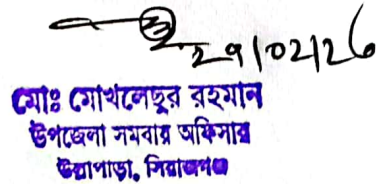 29/02/26
মোঃ মোখলেছুর রহমান
উপজেলা সমবায় অফিসার
উল্লাপাড়া, সিরাজগঞ্জ